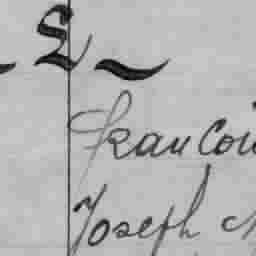 L
Francoi
Joseph